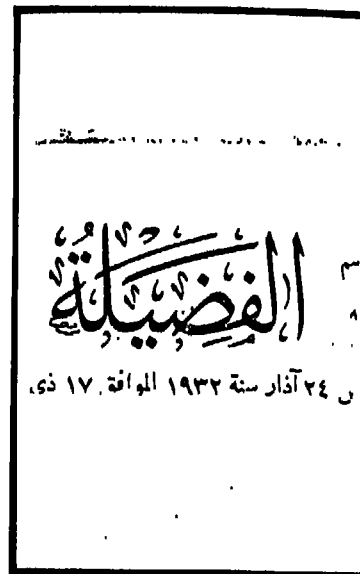 الفضيلة
سم
٨
٢٤ آذار سنة ١٩٣٢ الموافق ١٧ ذي